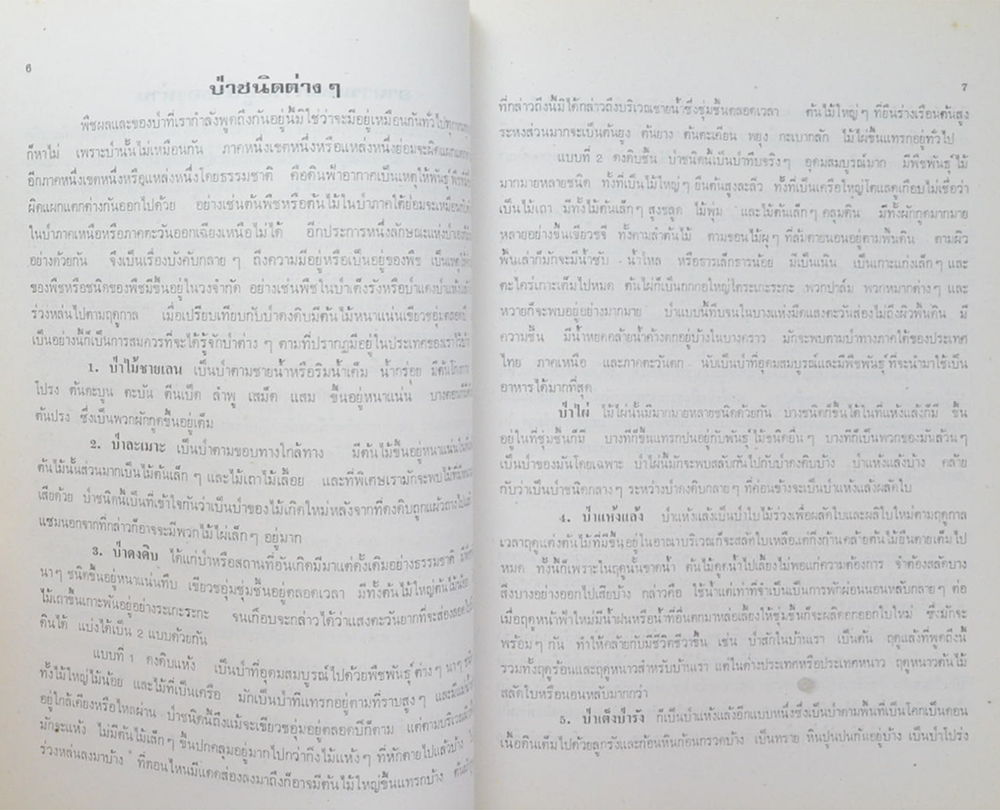 6
ป่าชนิดต่าง ๆ
พืชผลและของป่าที่เรากำลังพูดถึงกันอยู่นี้มิใช่ว่าจะมีอยู่เหมือนกันทั่วไปทุก
ก็หาไม่ เพราะป่านั้นไม่เหมือนกัน ภาคหนึ่งเขตหนึ่งหรือแหล่งหนึ่งย่อมจะผิดแผก
อีกภาคหนึ่งเขตหนึ่งหรือแหล่งหนึ่งโดยธรรมชาติ คือดินฟ้าอากาศเป็นเหตุให้พันธุ์
ผิดแผกแตกต่างกันออกไปด้วย อย่างเช่นต้นพืชหรือต้นไม้ในป่าภาคใต้ย่อมจะเหมือนกับ
ในป่าภาคเหนือหรือภาคตะวันออกเฉียงเหนือไม่ได้ อีกประการหนึ่งลักษณะแห่งป่า
อย่างด้วยกัน จึงเป็นเรื่องบังคับกลาย ๆ ถึงความมีอยู่หรือเป็นอยู่ของพืช เป็นเหตุ
ของพืชหรือชนิดของพืชมีขึ้นอยู่ในวงจำกัด อย่างเช่นพืชในป่าเต็งรังหรือป่าแดงป่าแห้งแล้ง
ร่วงหล่นไปตามฤดูกาล เมื่อเปรียบเทียบกับป่าดงดิบมีต้นไม้หนาแน่นเขียวชอุ่มตลอดปี
เป็นอย่างนี้ก็เป็นการสมควรที่จะได้รู้จักป่าต่าง ๆ ตามที่ปรากฏมีอยู่ในประเทศของเราไว้บ้าง
1. ป่าไม้ชายเลน เป็นป่าตามชายน้ำหรือริมน้ำเค็ม น้ำกร่อย มีต้นโกงกาง
โปรง ต้นตะบูน ตะบัน ตีนเป็ด ลำพู เสม็ด แสม ขึ้นอยู่หนาแน่น บางตอนก็มี
ต้นปรง ซึ่งเป็นพวกผักกูดขึ้นอยู่เต็ม
2. ป่าละเมาะ เป็นป่าตามขอบทางใกล้ทาง มีต้นไม้ขึ้นอยู่หนาแน่น
ต้นไม้นั้นส่วนมากเป็นไม้ต้นเล็ก ๆ และไม้เถาไม้เลื้อย และที่พิเศษเรามักจะพบไม้ที่มีหนาม
เสียด้วย ป่าชนิดนี้เป็นที่เข้าใจกันว่าเป็นป่าของไม้เกิดใหม่หลังจากที่ดงดิบถูกแผ้วถางไป
แซมนอกจากที่กล่าวก็อาจจะมีพวกไม้ไผ่เล็ก ๆ อยู่มาก
3. ป่าดงดิบ ได้แก่ป่าหรือสถานที่อันเกิดมีมาแต่ดั้งเดิมอย่างธรรมชาติ
นา ๆ ชนิดขึ้นอยู่หนาแน่นทึบ เขียวชอุ่มชุ่มชื้นอยู่ตลอดเวลา มีทั้งต้นไม้ใหญ่ต้นไม้น้อย
ไม้เถาขึ้นเกาะพันอยู่อย่างระเกะระกะ จนเกือบจะกล่าวได้ว่าแสงตะวันยากที่จะส่องลอด
ดินได้ แบ่งได้เป็น 2 แบบด้วยกัน
แบบที่ 1 ดงดิบแห้ง เป็นป่าที่อุดมสมบูรณ์ไปด้วยพืชพันธุ์ต่าง ๆ นา ๆ ชนิด
ทั้งไม้ใหญ่ไม้น้อย และไม้ที่เป็นเครือ มักเป็นป่าที่แทรกอยู่ตามที่ราบสูง ๆ และมี
อยู่ใกล้เคียงหรือไหลผ่าน ป่าชนิดนี้ถึงแม้จะเขียวชอุ่มอยู่ตลอดปีก็ตาม แต่ตามบริเวณ
มักจะแห้ง ไม่มีต้นไม้เล็ก ๆ ขึ้นปกคลุมอยู่มากไปกว่ากิ่งไม้แห้ง ๆ ที่หักตายไปแล้วบ้าง
ร่วงหล่นลงมาบ้าง ที่ตอนไหนมีแดดส่องลงมาถึงก็อาจมีต้นไม้ใหญ่ขึ้นแทรกบ้าง
7
ที่กล่าวถึงนี้มิได้กล่าวถึงบริเวณชายน้ำซึ่งชุ่มชื้นตลอดเวลา ต้นไม้ใหญ่ ๆ ที่ยืนร่างเรือนต้นสูง
ระหงส่วนมากจะเป็นต้นยูง ต้นยาง ต้นตะเคียน พยุง กะบากลัก ไม้ไผ่ขึ้นแทรกอยู่ทั่วไป
แบบที่ 2 ดงดิบชื้น ป่าชนิดนี้เป็นป่าทึบจริง ๆ อุดมสมบูรณ์มาก มีพืชพันธุ์ไม้
มากมายหลายชนิด ทั้งที่เป็นไม้ใหญ่ ๆ ยืนต้นสูงละลิ่ว ทั้งที่เป็นเครือใหญ่โตแลดูเกือบไม่เชื่อว่า
เป็นไม้เถา มีทั้งไม้ต้นเล็ก ๆ สูงชลูด ไม้พุ่ม และไม้ต้นเล็ก ๆ คลุมดิน มีทั้งผักกูดมากมาย
หลายอย่างขึ้นเขียวขจี ทั้งตามลำต้นไม้ ตามขอนไม้ผุ ๆ ที่ล้มตายนอนอยู่ตามพื้นดิน ตามผิว
พื้นเล่าก็มักจะมีน้ำซับ น้ำไหล หรือธารเล็กธารน้อย มีเป็นเนิน เป็นเกาะแก่งเล็ก ๆ และ
ตะไคร่เกาะเต็มไปหมด ต้นไผ่ก็เป็นกกกอใหญ่โตระเกะระกะ พวกปาล์ม พวกหมากต่าง ๆ และ
หวายก็จะพบอยู่อย่างมากมาย ป่าแบบนี้ทึบจนในบางแห่งมืดแสงตะวันส่องไม่ถึงผิวพื้นดิน มี
ความชื้น มีน้ำหยดคล้ายน้ำค้างตกอยู่บ้างในบางคราว มักจะพบตามป่าทางภาคใต้ของประเทศ
ไทย ภาคเหนือ และภาคตะวันตก นับเป็นป่าที่อุดมสมบูรณ์และมีพืชพันธุ์ที่จะนำมาใช้เป็น
อาหารได้มากที่สุด
ป่าไผ่ ไม้ไผ่นั้นมีมากมายหลายชนิดด้วยกัน บางชนิดก็ขึ้นได้ในที่แห้งแล้งก็มี ขึ้น
อยู่ในที่ชุ่มชื้นก็มี บางทีก็ขึ้นแทรกปนอยู่กับพันธุ์ไม้ชนิดอื่น ๆ บางทีก็เป็นพวกของมันล้วน ๆ
เป็นป่าของมันโดยเฉพาะ ป่าไผ่นี้มักจะพบสลับกันไปกับป่าดงดิบบ้าง ป่าแห้งแล้งบ้าง คล้าย
กับว่าเป็นป่าชนิดกลาง ๆ ระหว่างป่าดงดิบกลาย ๆ ที่ค่อนข้างจะเป็นป่าแห้งแล้งผลัดใบ
4. ป่าแห้งแล้ง ป่าแห้งแล้งเป็นป่าใบไม้ร่วงเพื่อผลัดใบและผลิใบใหม่ตามฤดูกาล
เวลาฤดูแล้งต้นไม้ที่มีขึ้นอยู่ในอาณาบริเวณก็จะสลัดใบเหลือแต่กิ่งก้านคล้ายต้นไม้ยืนตายเต็มไป
หมด ทั้งนี้ก็เพราะในฤดูนั้นขาดน้ำ ต้นไม้ดูดน้ำไปเลี้ยงไม่พอแก่ความต้องการ จำต้องสลัดบาง
สิ่งบางอย่างออกไปเสียบ้าง กล่าวคือ ใช้น้ำแต่เท่าที่จำเป็นเป็นการพักผ่อนนอนหลับกลาย ๆ ต่อ
เมื่อฤดูหน้าฟ้าใหม่มีน้ำฝนหรือน้ำที่อื่นตกมาหล่อเลี้ยงให้ชุ่มชื้นก็จะผลิดอกออกใบใหม่ ซึ่งมักจะ
พร้อม ๆ กัน ทำให้คล้ายกับมีชีวิตชีวาขึ้น เช่น ป่าสักในบ้านเรา เป็นต้น ฤดูแล้งที่พูดถึงนี้
รวมทั้งฤดูร้อนและฤดูหนาวสำหรับบ้านเรา แต่ในต่างประเทศหรือประเทศหนาว ฤดูหนาวต้นไม้
สลัดใบหรือนอนหลับมากกว่า
5. ป่าเต็งป่ารัง ก็เป็นป่าแห้งแล้งอีกแบบหนึ่งซึ่งเป็นป่าตามพื้นที่เป็นโคกเป็นดอน
เนื้อดินเต็มไปด้วยลูกรังและก้อนหินก้อนกรวดบ้าง เป็นทราย หินปูนปนกันอยู่บ้าง เป็นป่าโปร่ง